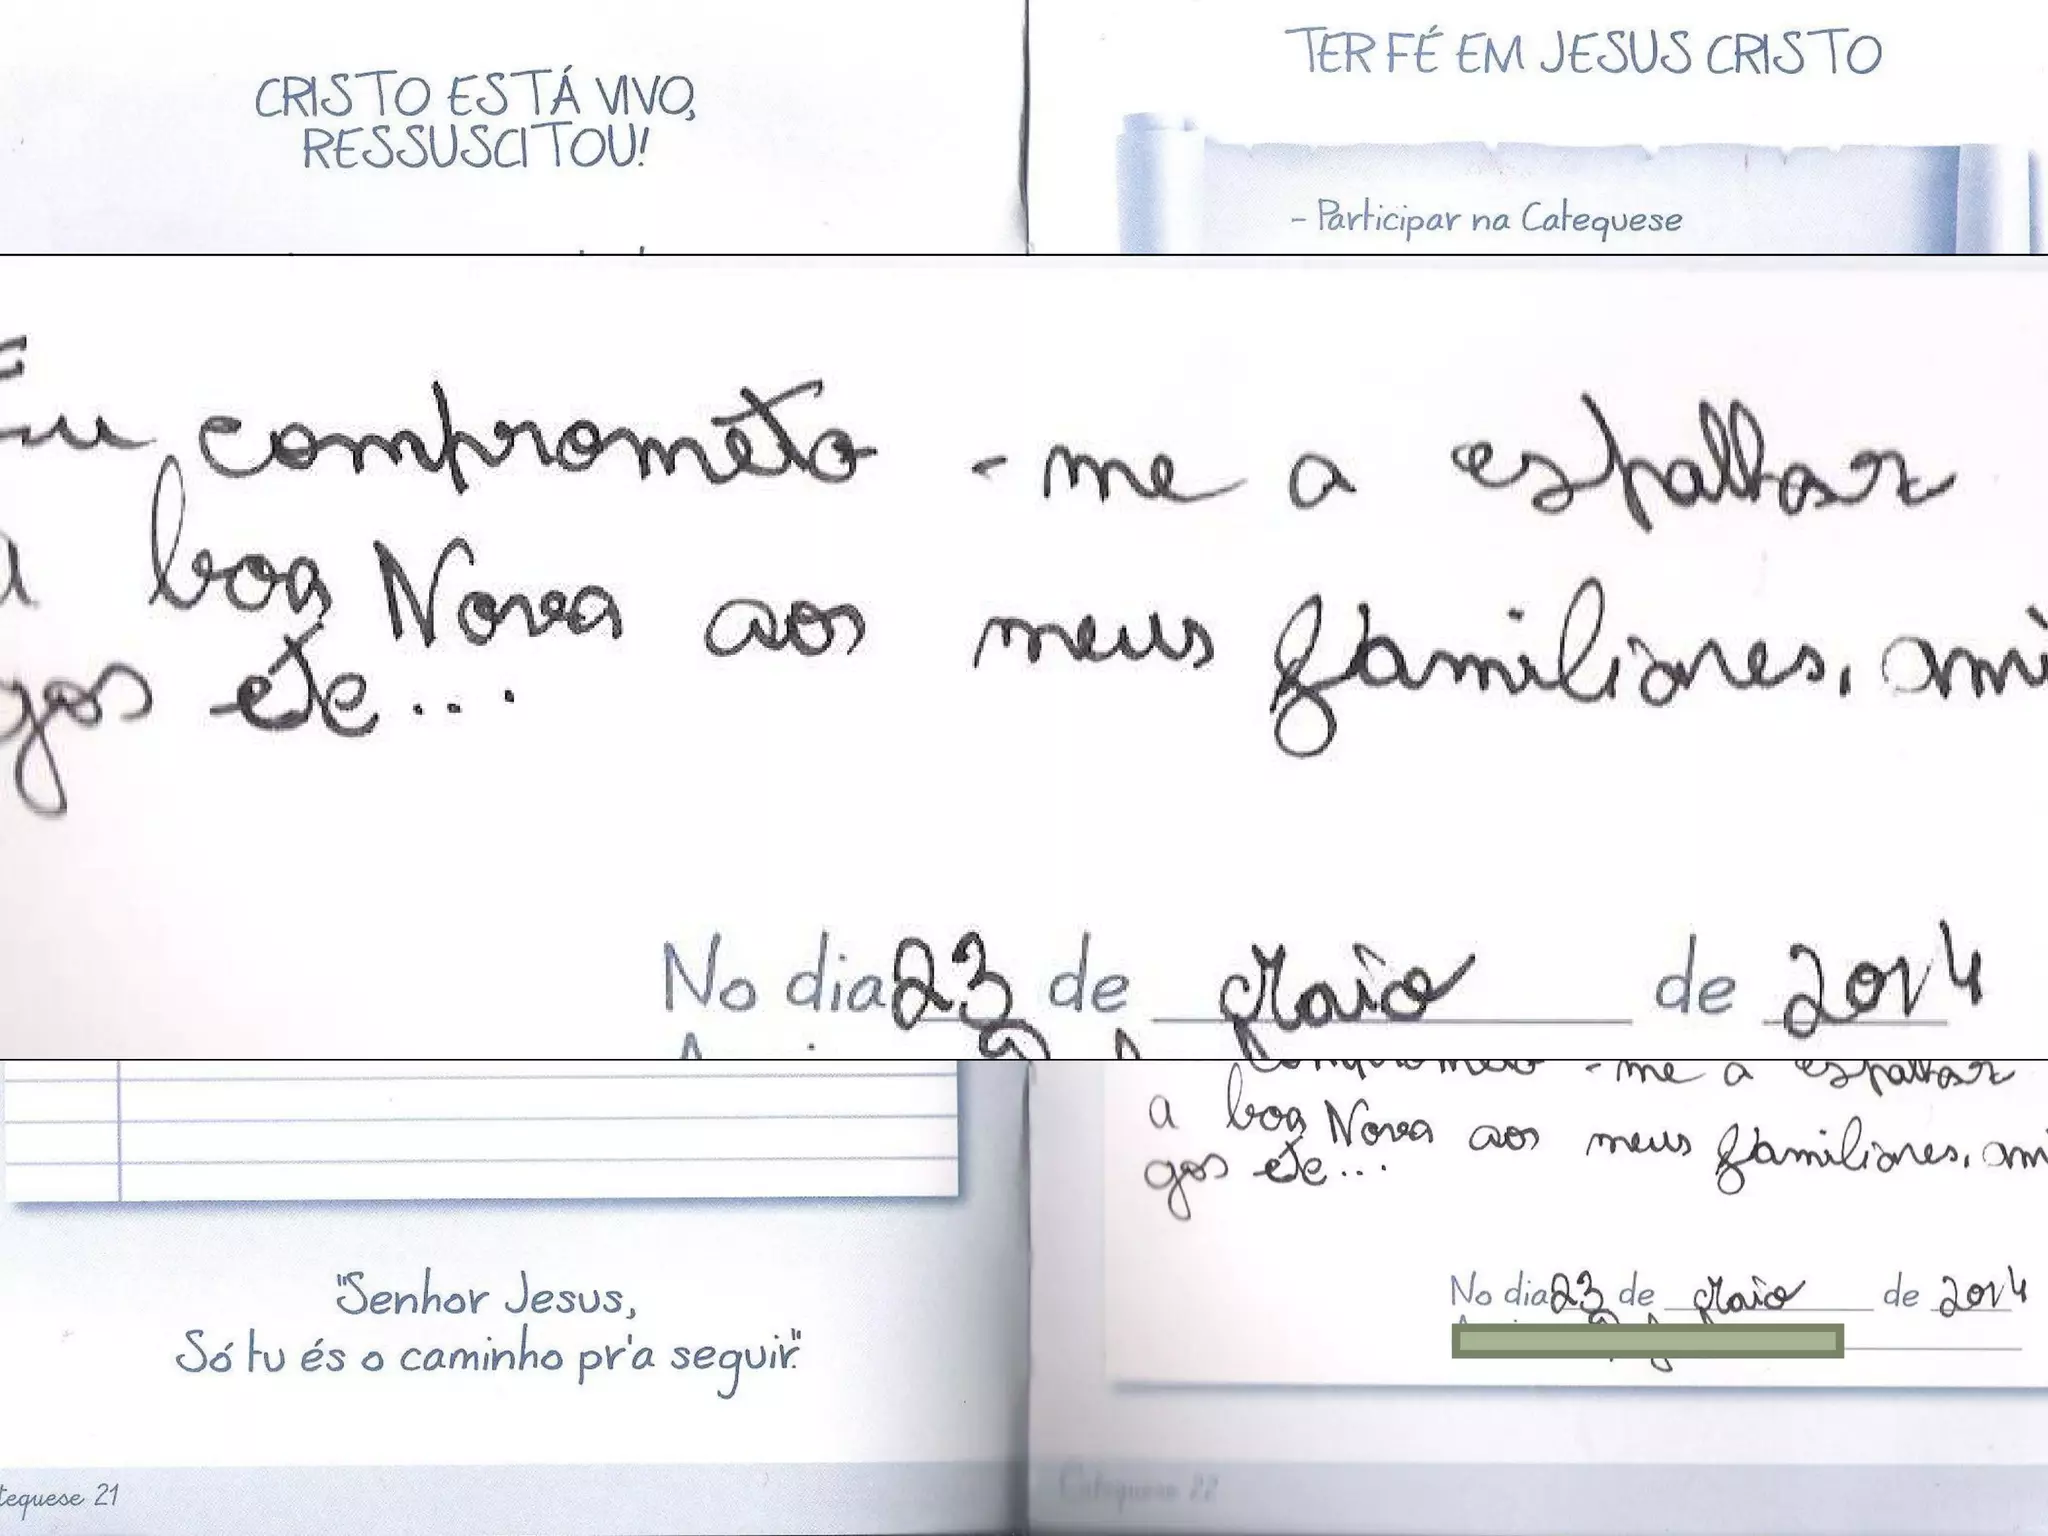 CRISTO ESTÁ VIVO,
RESSUSCITOU!
TER FÉ EM JESUS CRISTO
- Participar na Catequese
Eu comprometo - me a espalhar
a boa Nova aos meus familiares, ami
gos etc...
No dia 23 de Maio de 2014
"Senhor Jesus,
Só tu és o caminho pr'a seguir."
tequese 21
comprometo - me a espalhar
a boa Nova aos meus familiares, ami
gos etc...
No dia 23 de Maio de 2014
Catequese 22